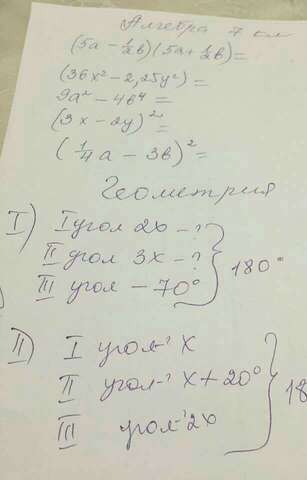 Алгебра 7 кл
(5a - 1/2b)(5a + 1/2b) =
(36x² - 2,25y²) =
9a² - 4b⁴ =
(3x - 2y)² =
(1/4a - 3b)² =
Геометрия
I) I угол 2x - ?
II угол 3x - ?
III угол - 70°
180°
II) I угол-? x
II угол-? x + 20°
III угол-? 2x
18